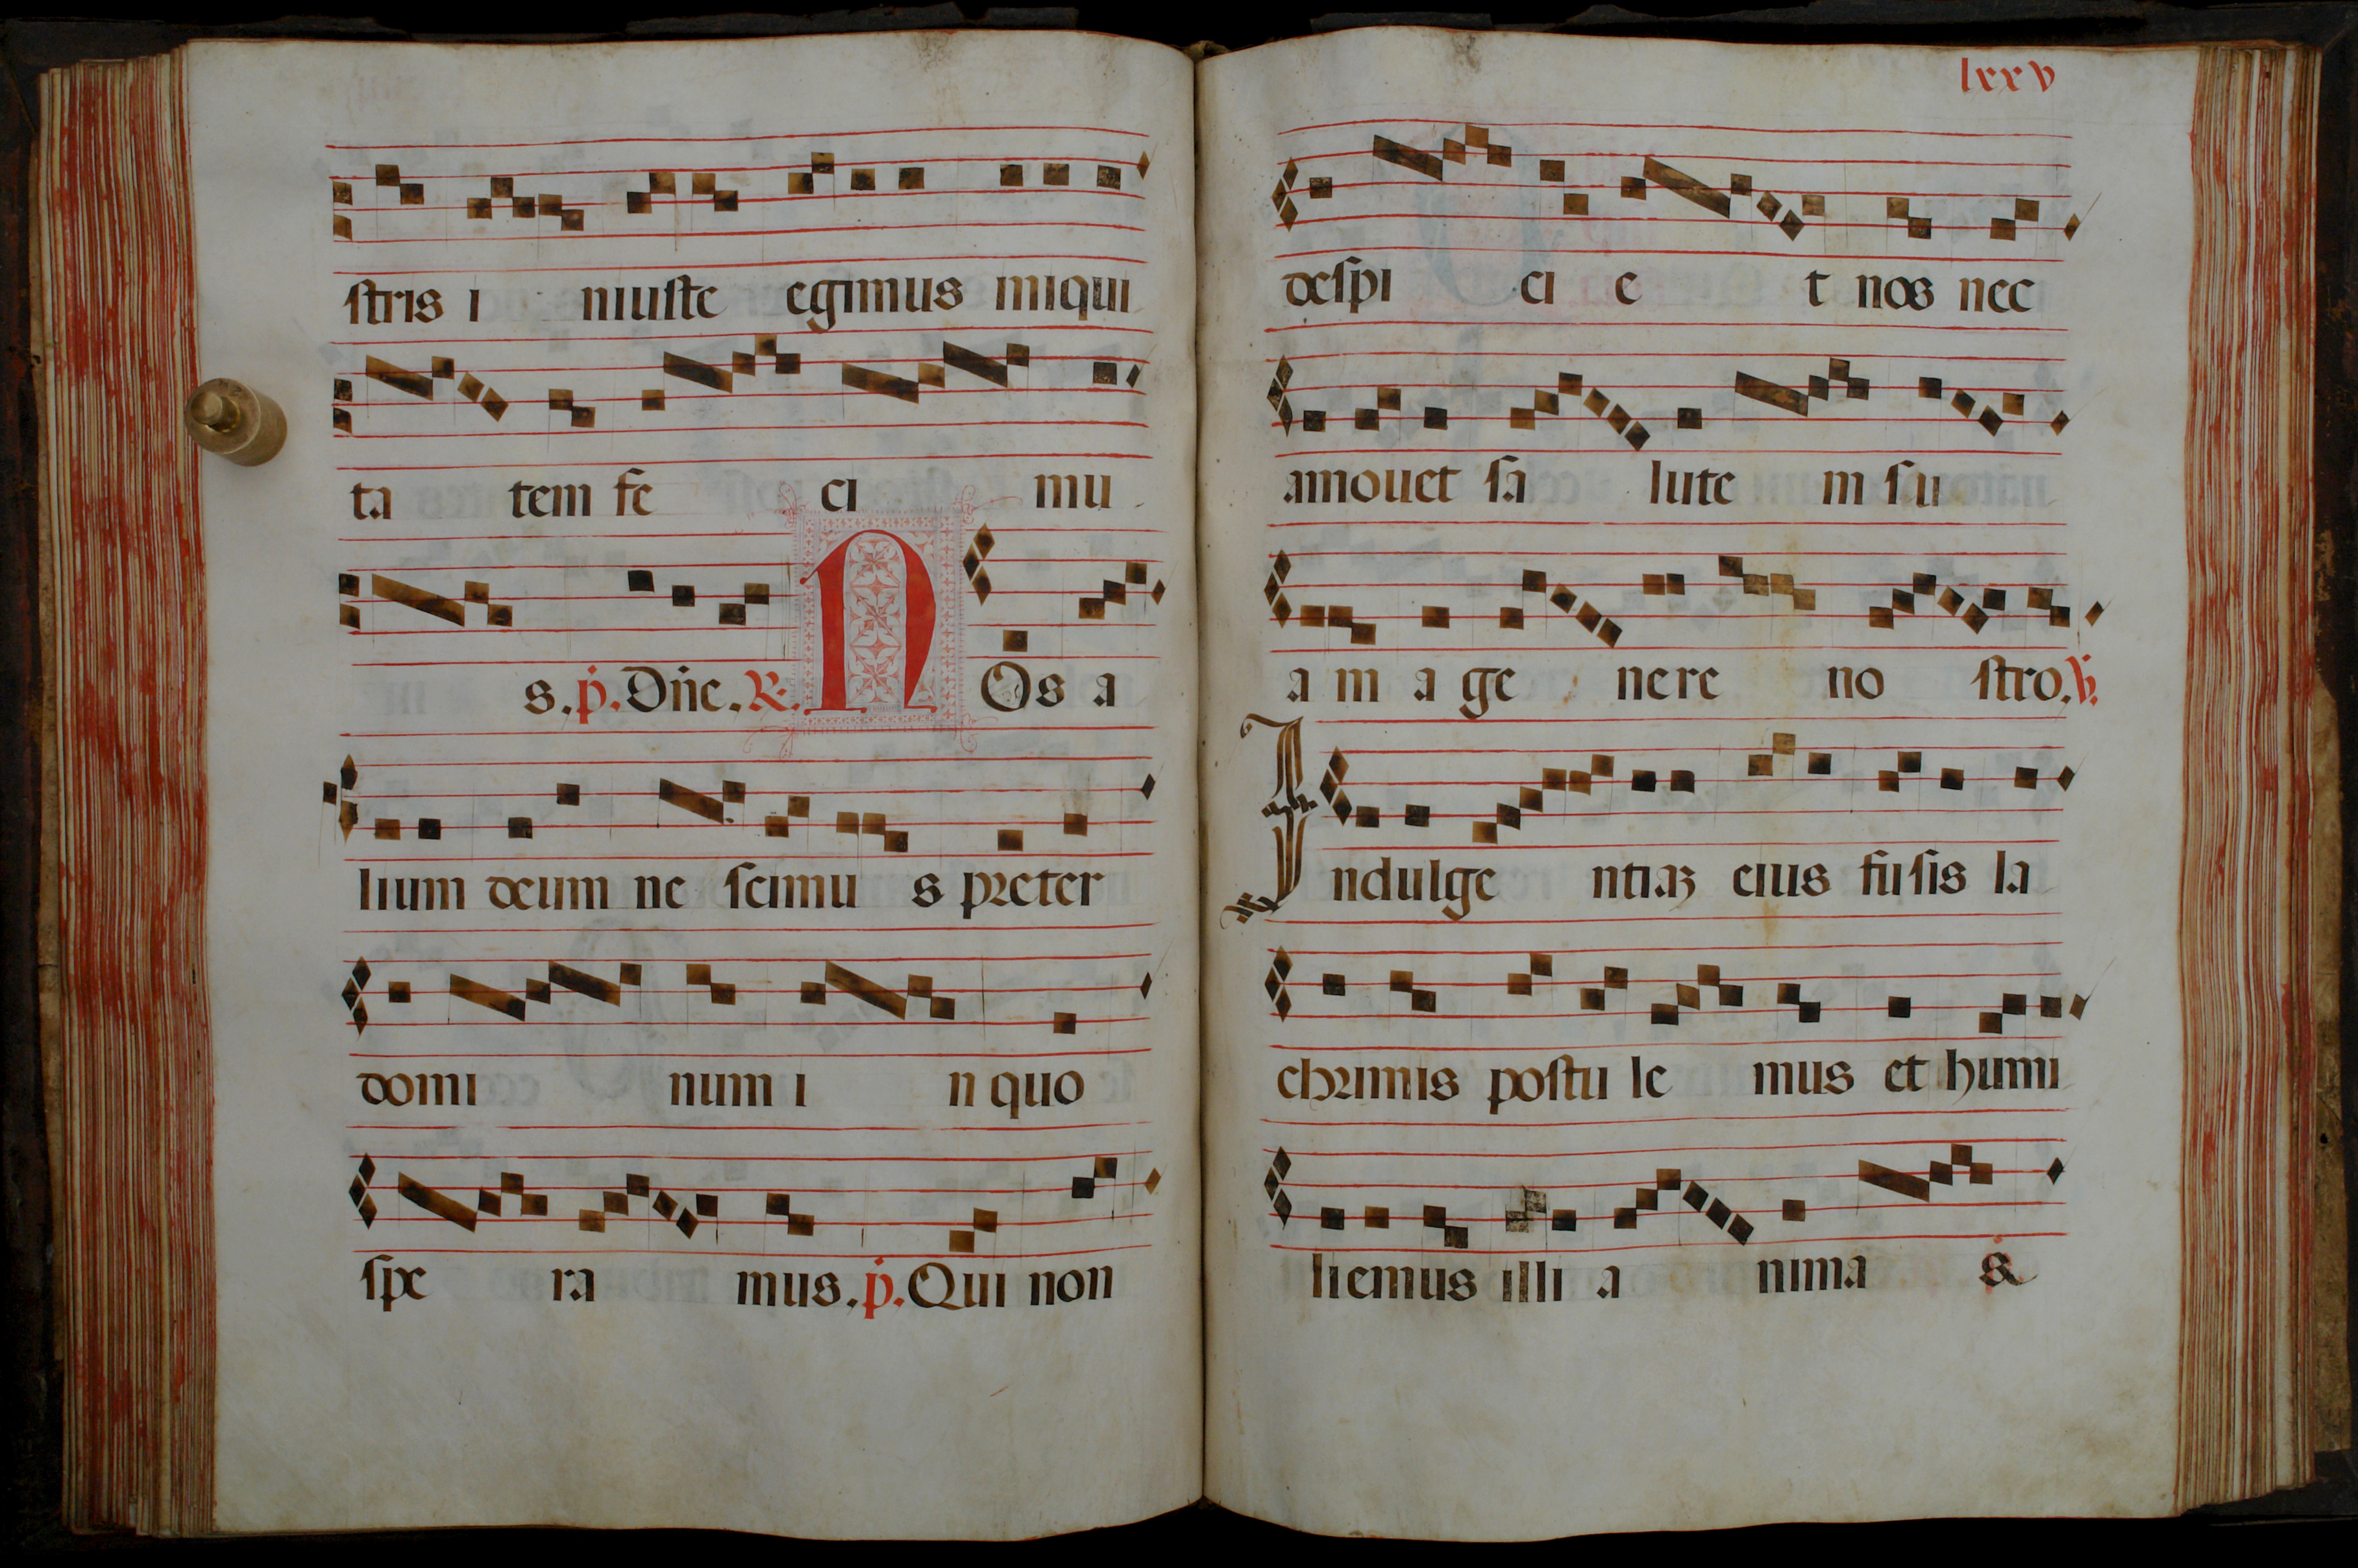 stris i niuste egimus iniqui
ta tem fe ci mu
s. p. Dñe. R. NOs a
lium deum ne scimu s preter
domi num i n quo
spe ra mus. p. Qui non
lxxv
despi ci e t nos nec
amouet sa lute m su
a m a ge nere no stro. V.
Indulge ntiaꝫ eius fusis la
chrimis postu le mus et humi
liemus illi a nima s